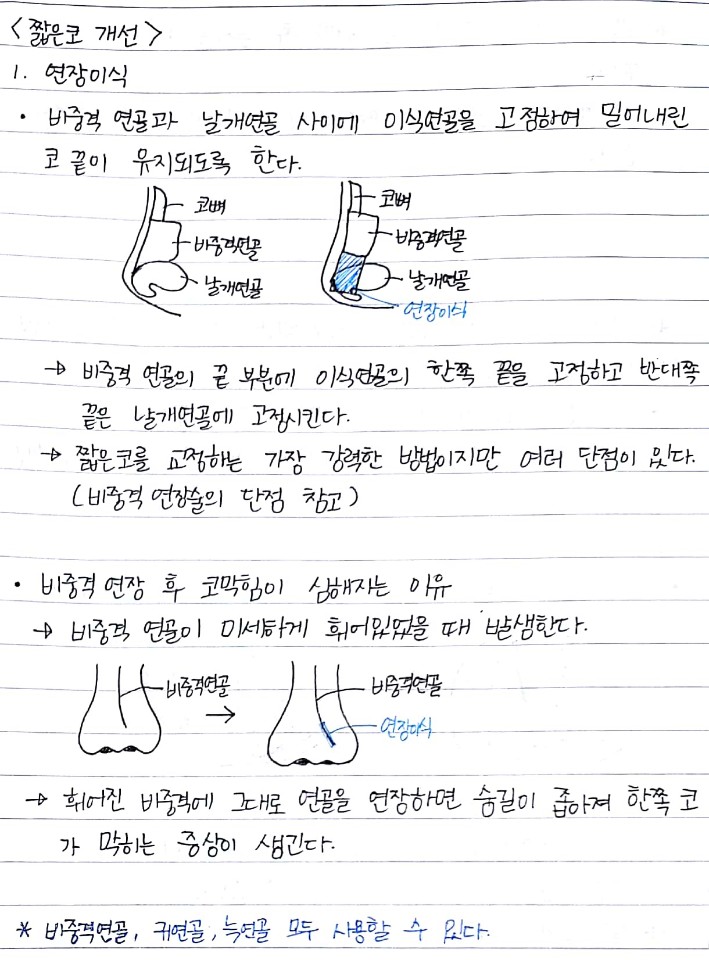 <짧은코 개선>
1. 연장이식
• 비중격 연골과 날개연골 사이에 이식연골을 고정하여 밀어내린
코 끝이 유지되도록 한다.
코뼈
비중격연골
날개연골
코뼈
비중격연골
날개연골
연장이식
→ 비중격 연골의 끝 부분에 이식연골의 한쪽 끝을 고정하고 반대쪽
끝은 날개연골에 고정시킨다.
→ 짧은코를 교정하는 가장 강력한 방법이지만 여러 단점이 있다.
(비중격 연장술의 단점 참고)
• 비중격 연장 후 코막힘이 심해지는 이유
→ 비중격 연골이 미세하게 휘어있었을 때 발생한다.
비중격연골
→
비중격연골
연장이식
→ 휘어진 비중격에 그대로 연골을 연장하면 숨길이 좁아져 한쪽 코
가 막히는 증상이 생긴다.
* 비중격연골, 귀연골, 늑연골 모두 사용할 수 있다.